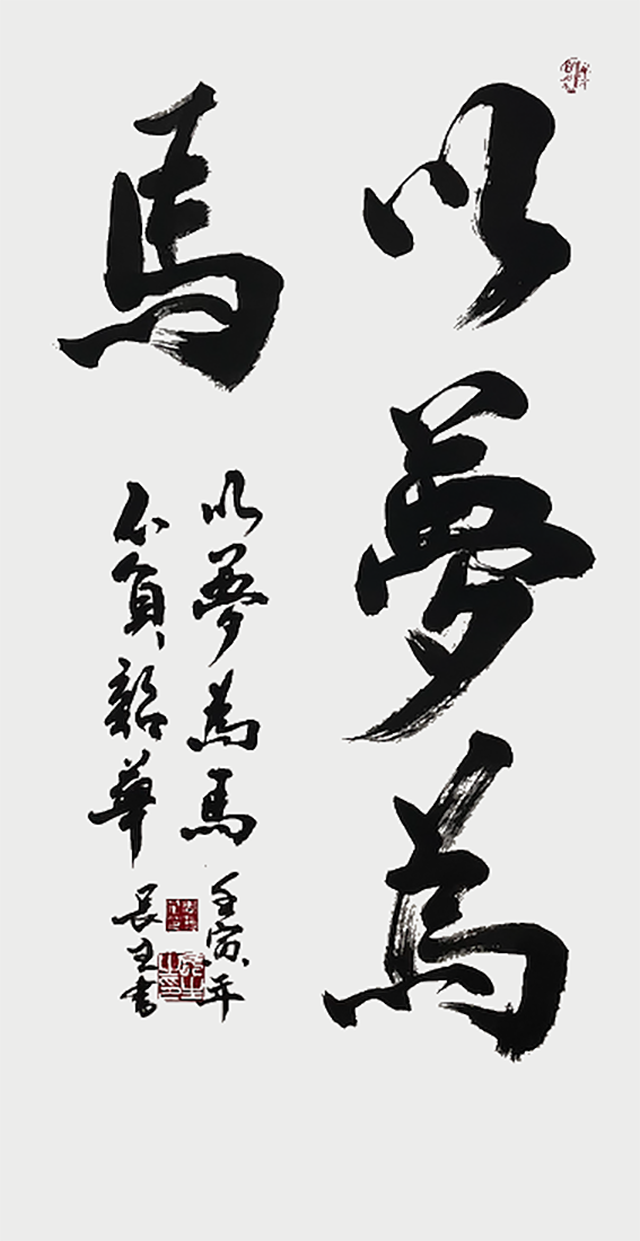 以夢為
馬
以夢為馬 壬寅年
不負韶華 長生書